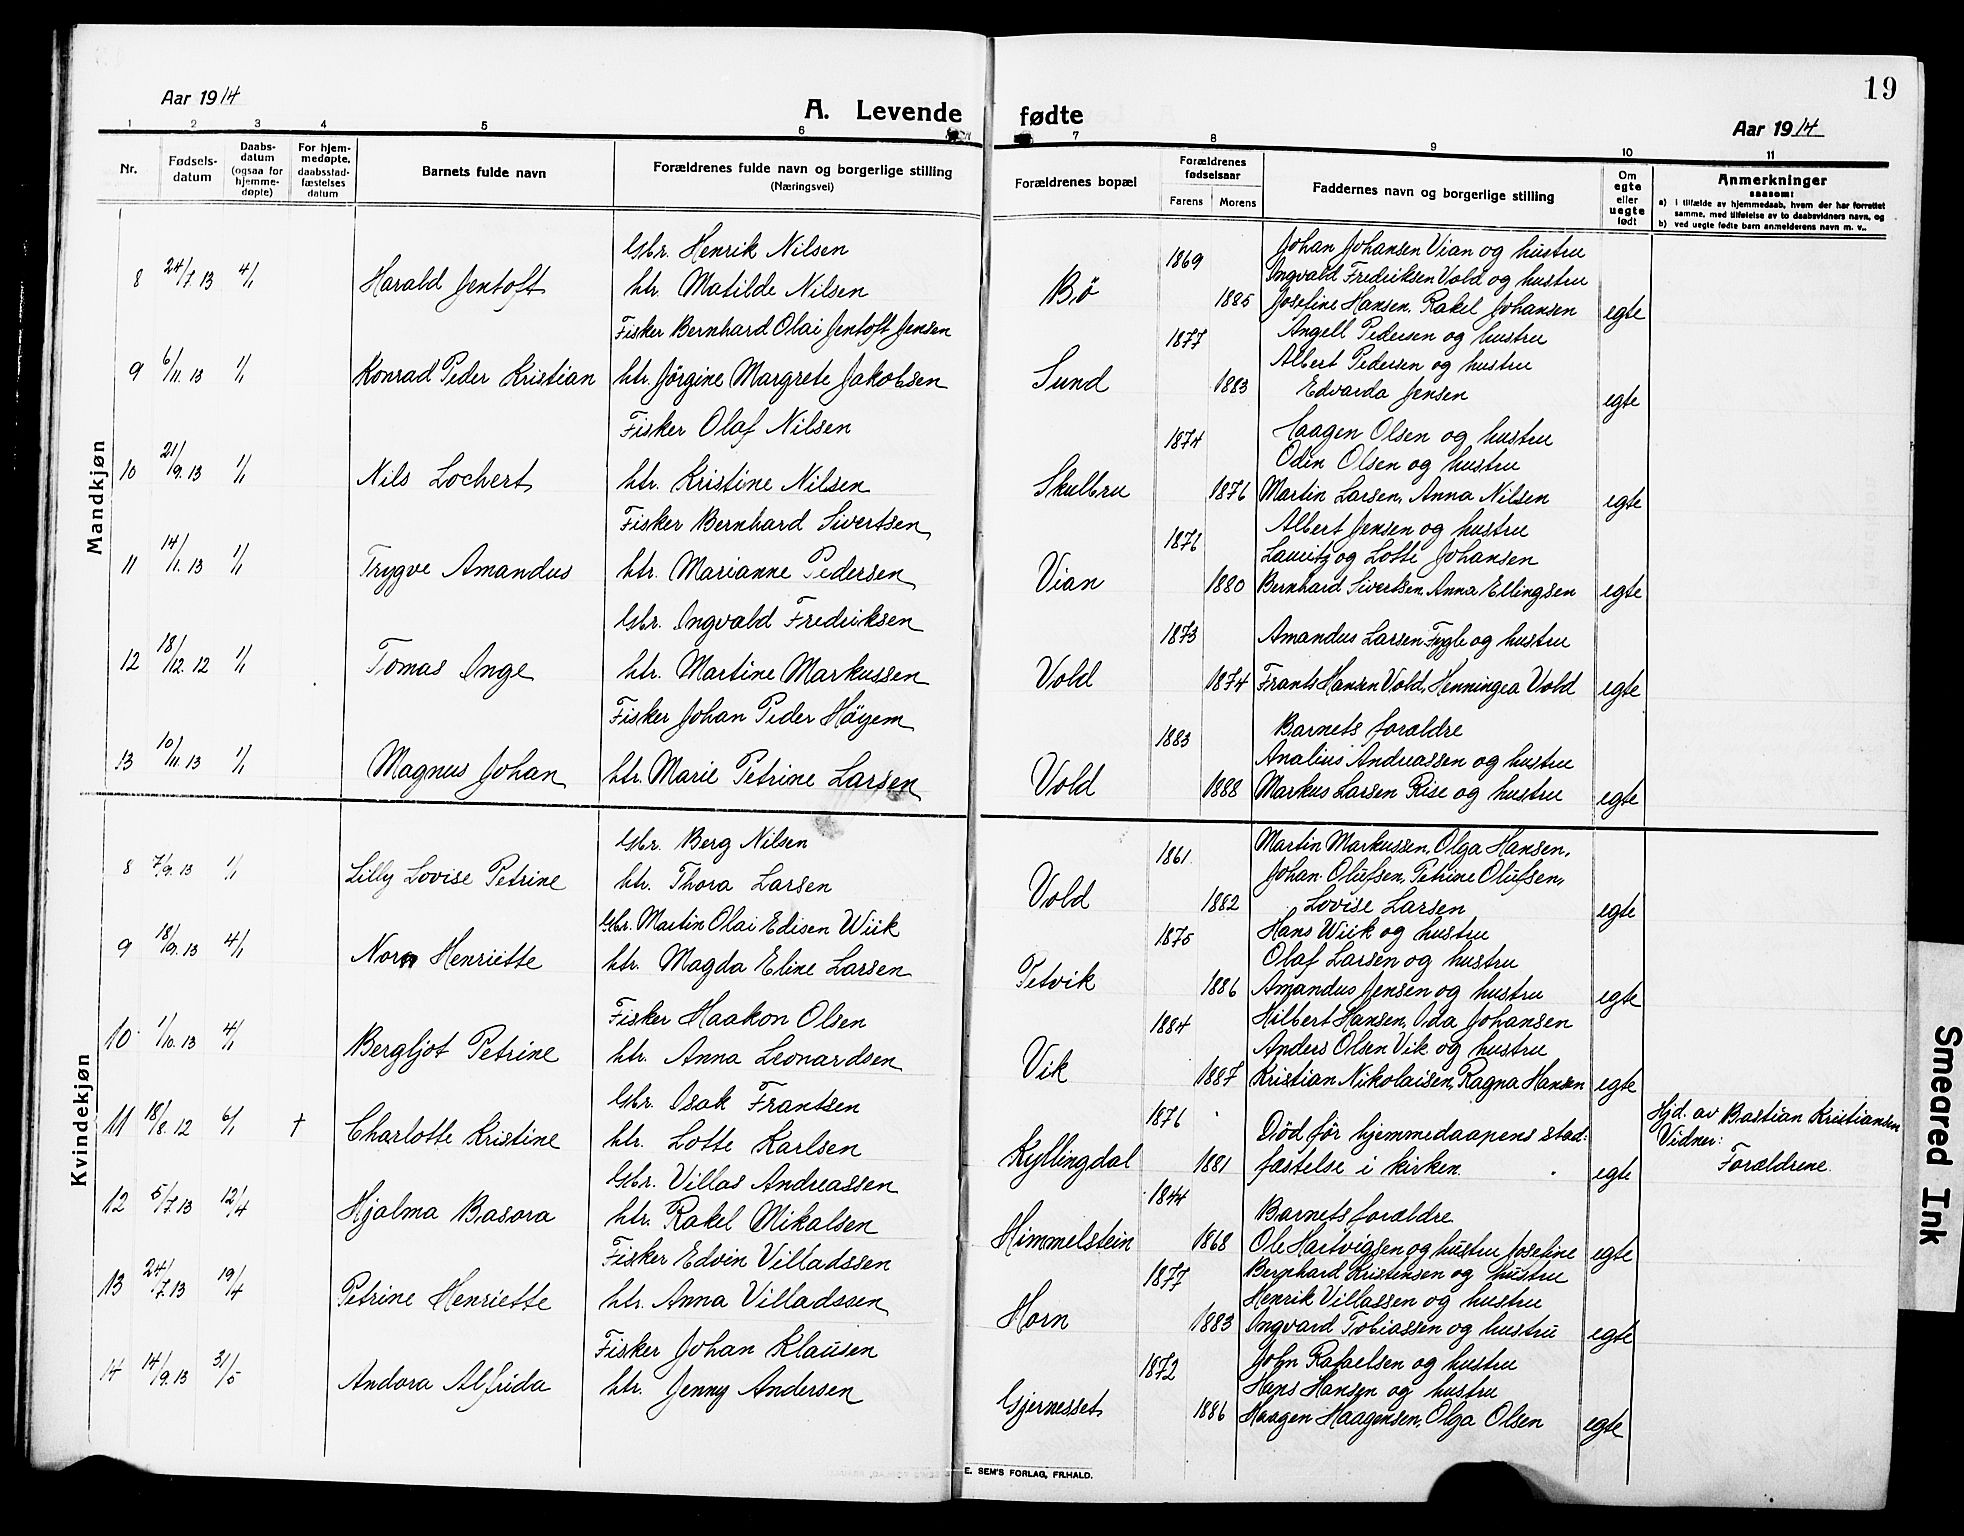 19
Aar 1914
A. Levende fødte
Aar 1914
1 2 3 4 5 6 7 8 9 10 11
Nr.
Fødsels-
datum
Daabs-
datum
(ogsaa for
hjemme-
døpte)
For hjem-
medøpte,
daabsstad-
fæstelses
datum
Barnets fulde navn
Forældrenes fulde navn og borgerlige stilling
(Næringsvei)
Forældrenes bopæl
Forældrenes
fødselsaar
Farens Morens
Faddernes navn og borgerlige stilling
Om
egte
eller
uegte
født
Anmerkninger
saasom:
a) i tilfælde av hjemmedaab, hvem der har forrettet
samme, med tilføielse av to daabsvidners navn, og
b) ved uegte fødte barn anmelderens navn m. v..
Mandkjøn
8 24/7. 13 4/1 Harald Jentoft
Gbr. Henrik Nilsen
htr. Matilde Nilsen
Bø 1869 1885
Johan Johansen Vian og hustru
Ingvald Fredriksen Vold og hustru
Josefine Hansen, Rakel Johansen
egte
9 6/11. 13 1/1 Konrad Peder Kristian
Fisker Bernhard Olai Jentoft Jensen
htr. Jörgine Margrete Jakobsen
Sund 1877 1883
Angell Pedersen og hustru
Albert Pedersen og hustru
Edvarda Jensen
egte
10 21/9. 13 1/1 Nils Lochert
Fisker Olaf Nilsen
htr. Kristine Nilsen
Skulbru 1874 1876
Haagen Olsen og hustru
Odin Olsen og hustru
Martin Larsen, Anna Nilsen
egte
11 14/1. 13 1/1 Trygve Amandus
Fisker Bernhard Sivertsen
htr. Marianne Pedersen
Vian 1876 1880
Albert Jensen og hustru
Lauritz og Lotte Johansen
Bernhard Sivertsen, Anna Ellingsen
egte
12 18/12. 12 1/1 Tomas Inge
Gbr. Ingvald Fredriksen
htr. Martine Markussen
Vold 1873 1874
Amandus Larsen Fygle og hustru
Frants Hansen Vold, Henningea Vold
egte
13 10/11. 13 1/1 Magnus Johan
Fisker Johan Peder Höyem
htr. Marie Petrine Larsen
Vold 1883 1888
Barnets forældre
Analius Andreassen og hustru
Markus Larsen Rise og hustru
egte
Kvindekjøn
8 7/9. 13 1/1 Lilly Lovise Petrine
Gbr. Berg Nilsen
htr. Thora Larsen
Vold 1861. 1882
Martin Markussen, Olga Hansen,
Johan Olufsen, Petrine Olufsen,
Lovise Larsen
egte
9 18/9. 13 4/1 Nora Henriette
Gbr. Martin Olai Edisen Wiik
htr. Magda Eline Larsen
Petvik 1875 1886
Hans Wiik og hustru
Olaf Larsen og hustru
Amandus Jensen og hustru
egte
10 1/10. 13 4/1 Bergljot Petrine
Fisker Haakon Olsen
htr. Anna Leonardsen
Vik 1884 1887
Hilbert Hansen, Oda Johansen
Anders Olsen Vik og hustru
Kristian Nikolaisen, Ragna Hansen
egte
11 18/8. 12 6/1 † Charlotte Kristine
Gbr. Isak Frantsen
htr. Lotte Karlsen
Kyllingdal 1876 1881
Död för hjemmedaapens stad:
fæstelse i kirken.
egte
Hjd. av Bastian Kristiansen
Vidner:
Forældrene.
12 5/7. 13 12/4 Hjalma Basora
Gbr. Villas Andreassen
htr. Rakel Mikalsen
Himmelstein 1844 1868
Barnets forældre
Ole Hartvigsen og hustru Josefine
egte
13 24/7. 13 19/4 Petrine Henriette
Fisker Edvin Villadssen
htr. Anna Villadssen
Horn 1877 1883
Bernhard Kristensen og hustru
Henrik Villassen og hustru
Ingvard Tobiassen og hustru
egte
14 14/9. 13 31/5 Andora Alfrida
Fisker Johan Klausen
htr. Jenny Andersen
Gjernesset 1872 1886
John Rafaelsen og hustru
Hans Hansen og hustru
Haagen Haagensen, Olga Olsen
egte
E. SEM'S FORLAG, FR.HALD.
Smeared Ink